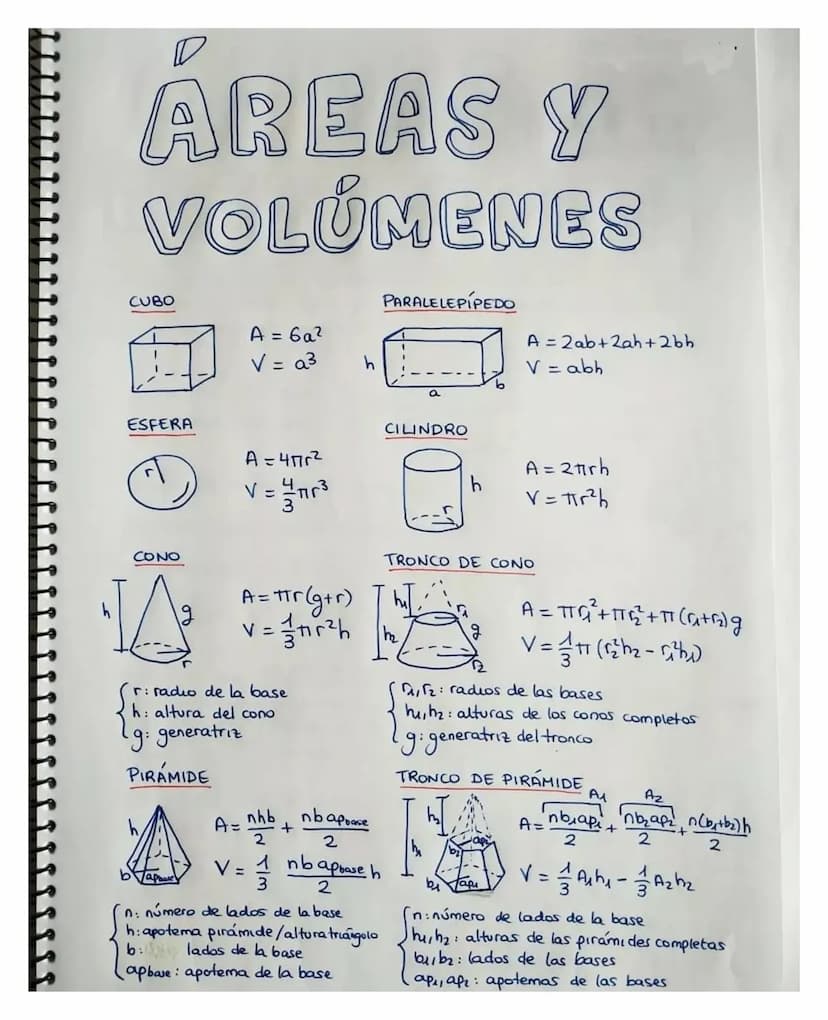 ÁREAS Y
VOLÚMENES
CUBO
A = 6a²
V = a³
PARALELEPÍPEDO
h
a
b
A = 2ab+2ah+2bh
V = abh
ESFERA
r
A = 4πr²
V = 4/3 πr³
CILINDRO
h
r
A = 2πrh
V = πr²h
CONO
h
g
r
A = πr(g+r)
V = 1/3 πr²h
r: radio de la base
h: altura del cono
g: generatriz
TRONCO DE CONO
h₁
h₂
r₁
g
r₂
A = πr₁²+πr₂²+π(r₁+r₂)g
V = 1/3 π (r₂²h₂ - r₁²h₁)
r₁,r₂: radios de las bases
h₁,h₂: alturas de los conos completos
g: generatriz del tronco
PIRÁMIDE
h
b
apbase
A = nhb/2 + nb apbase/2
V = 1/3 nb apbase/2 h
n: número de lados de la base
h: apotema pirámide/altura triángulo
b: lados de la base
apbase: apotema de la base
TRONCO DE PIRÁMIDE
h₂
h₁
b₂
ap₂
b₁
ap₁
A₁ A₂
A = nb₁ap₁/2 + nb₂ap₂/2 + n(b₁+b₂)h/2
V = 1/3 A₁h₁ - 1/3 A₂h₂
n: número de lados de la base
h₁,h₂: alturas de las pirámides completas
b₁,b₂: lados de las bases
ap₁,ap₂: apotemas de las bases